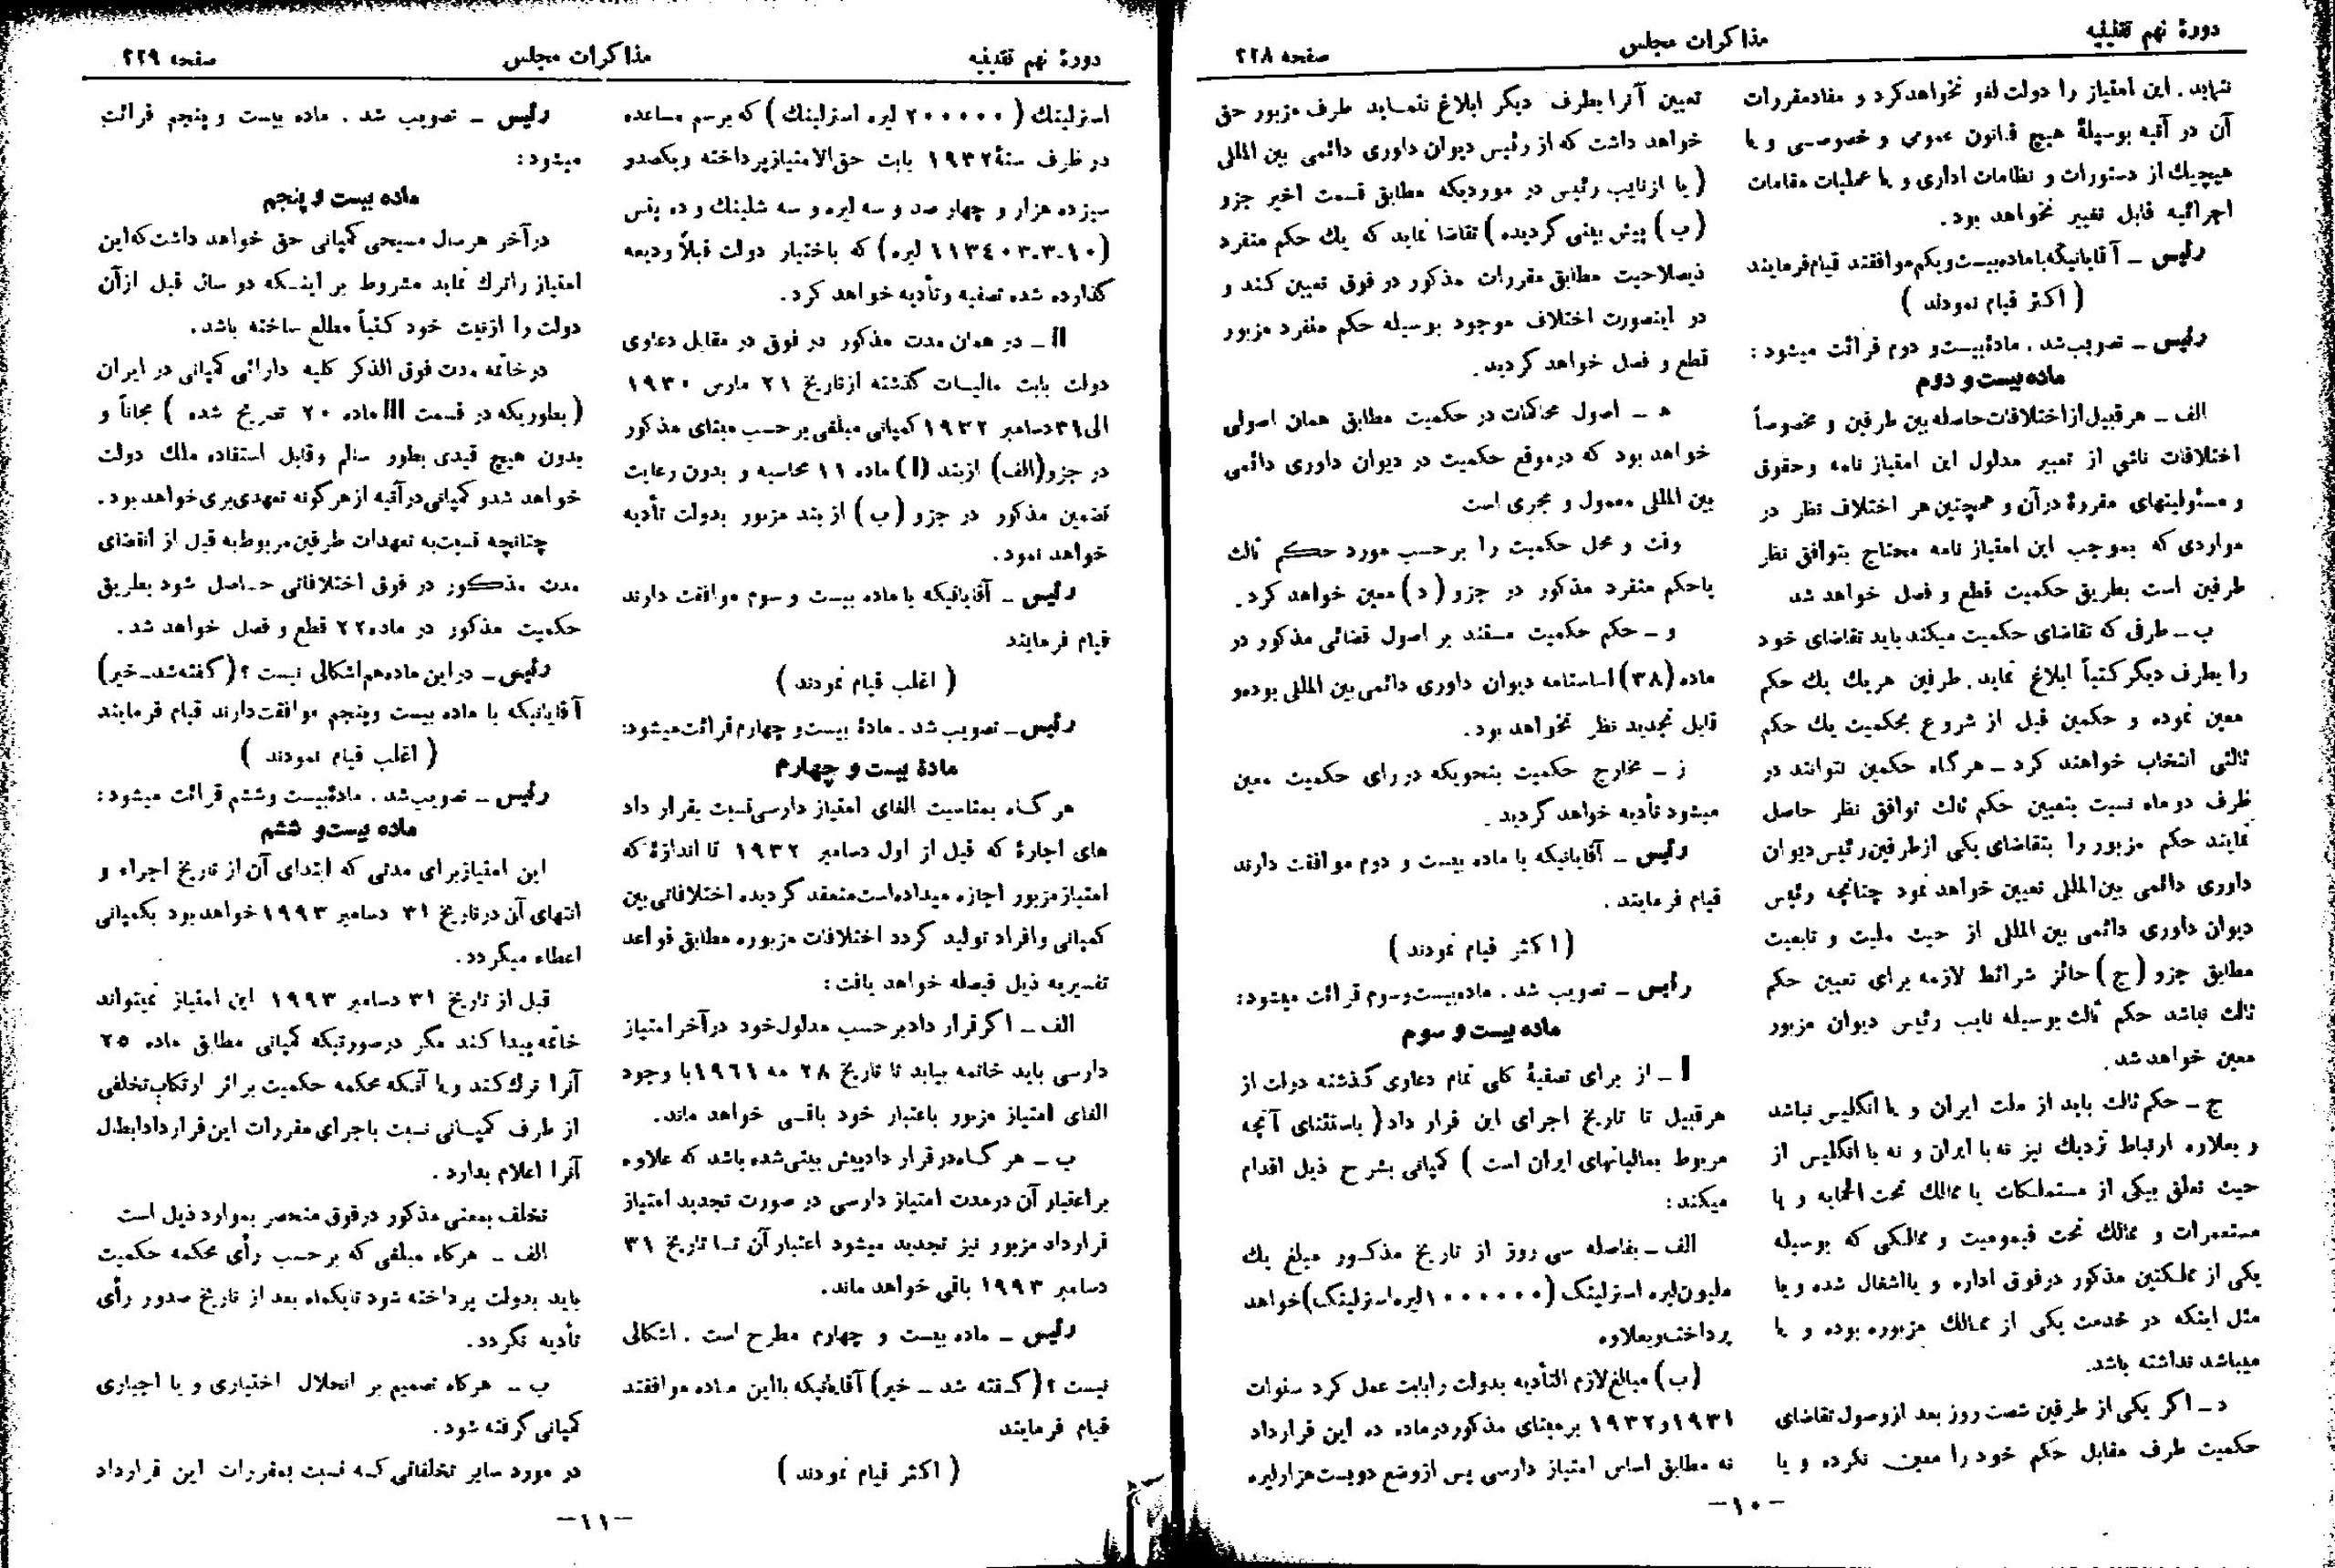 دورهٔ نهم تقنینیه
مذاکرات مجلس
صفحه ۲۲۸
ننماید . این امتیاز را دولت لغو نخواهد کرد و مفاد مقررات
آن در آتیه بوسیلهٔ هیچ قانون عمومی و خصوصی و یا
هیچیك از دستورات و نظامات اداری و یا عملیات مقامات
اجرائیه قابل تغییر نخواهد بود .
رئیس ـ آقایانیکه با ماده بیست و یکم موافقند قیام فرمایند
( اکثر قیام نمودند )
رئیس ـ تصویب شد . مادهٔ بیست و دوم قرائت میشود :
ماده بیست و دوم
الف ـ هر قبیل از اختلافات حاصله بین طرفین و مخصوصاً
اختلافات ناشی از تعبیر مدلول این امتیاز نامه و حقوق
و مسئولیتهای مقررهٔ در آن و همچنین هر اختلاف نظر در
مواردی که بموجب این امتیاز نامه محتاج بتوافق نظر
طرفین است بطریق حکمیت قطع و فصل خواهد شد
ب ـ طرفی که تقاضای حکمیت میکند باید تقاضای خود
را بطرف دیگر کتباً ابلاغ نماید . طرفین هریك یك حکم
معین نموده و حکمین قبل از شروع بحکمیت یك حکم
ثالثی انتخاب خواهند کرد ـ هر گاه حکمین نتوانند در
ظرف دو ماه نسبت بتعیین حکم ثالث توافق نظر حاصل
نمایند حکم مزبور را بتقاضای یکی از طرفین رئیس دیوان
داوری دائمی بین المللی تعیین خواهد نمود چنانچه رئیس
دیوان داوری دائمی بین المللی از حیث ملیت و تابعیت
مطابق جزو ( ج ) حائز شرائط لازمه برای تعیین حکم
ثالث نباشد حکم ثالث بوسیله نایب رئیس دیوان مزبور
معین خواهد شد .
ج ـ حکم ثالث باید از ملت ایران و یا انگلیس نباشد
و بعلاوه ارتباط نزدیك نیز نه با ایران و نه با انگلیس از
حیث تعلق بیکی از مستملکات یا ممالك تحت الحمایه و یا
مستعمرات و ممالك تحت قیمومیت و ممالکی که بوسیله
یکی از مملکتین مذکور در فوق اداره و یا اشغال شده و یا
مثل اینکه در خدمت یکی از ممالك مزبوره بوده و یا
میباشد نداشته باشد .
د ـ اگر یکی از طرفین شصت روز بعد از وصول تقاضای
حکمیت طرف مقابل حکم خود را معین نکرده و یا
تعیین آنرا بطرف دیگر ابلاغ ننماید طرف مزبور حق
خواهد داشت که از رئیس دیوان داوری دائمی بین المللی
( یا از نایب رئیس در موردیکه مطابق قسمت اخیر جزو
(ب ) پیش بینی گردیده ) تقاضا نماید که یك حکم منفرد
ذیصلاحیت مطابق مقررات مذکور در فوق تعیین کند و
در اینصورت اختلاف موجود بوسیله حکم منفرد مزبور
قطع و فصل خواهد گردید .
ه ـ اصول محاکمات در حکمیت مطابق همان اصولی
خواهد بود که در موقع حکمیت در دیوان داوری دائمی
بین المللی معمول و مجری است
وقت و محل حکمیت را بر حسب مورد حکم ثالث
یا حکم منفرد مذکور در جزو ( د ) معین خواهد کرد .
و ـ حکم حکمیت مستند بر اصول قضائی مذکور در
ماده (۳۸) اساسنامه دیوان داوری دائمی بین المللی بوده و
قابل تجدید نظر نخواهد بود .
ز ـ مخارج حکمیت بنحویکه در رای حکمیت معین
میشود تأدیه خواهد گردید .
رئیس ـ آقایانیکه با ماده بیست و دوم موافقت دارند
قیام فرمایند .
( اکثر قیام نمودند )
رئیس ـ تصویب شد . ماده بیست و سوم قرائت میشود :
ماده بیست و سوم
I ـ از برای تصفیهٔ کلی تمام دعاوی گذشته دولت از
هر قبیل تا تاریخ اجرای این قرار داد ( باستثنای آنچه
مربوط بمالیاتهای ایران است ) کمپانی بشرح ذیل اقدام
میکند :
الف ـ بفاصله سی روز از تاریخ مذکور مبلغ یك
ملیون لیره استرلینگ (۱۰۰۰۰۰۰ لیره استرلینگ) خواهد
پرداخت و بعلاوه
(ب) مبالغ لازم التأدیه بدولت را بابت عمل کرد سنوات
۱۹۳۱ و ۱۹۳۲ بر مبنای مذکور در ماده ده این قرارداد
نه مطابق اساس امتیاز دارسی پس از وضع دویست هزار لیره
ـ ۱۰ ـ
دورهٔ نهم تقنینیه
مذاکرات مجلس
صفحه ۲۲۹
استرلینك ( ۲۰۰۰۰۰ لیره استرلینك ) که برسم مساعده
در ظرف سنهٔ ۱۹۳۲ بابت حق الامتیاز پرداخته و یکصد و
سیزده هزار و چهار صد و سه لیره و سه شلینك و ده پنس
(۱۱۳٤۰۳.۳.۱۰ لیره) که باختیار دولت قبلاً ودیعه
گذارده شده تصفیه و تأدیه خواهد کرد .
II ـ در همان مدت مذکور در فوق در مقابل دعاوی
دولت بابت مالیات گذشته از تاریخ ۲۱ مارس ۱۹۳۰
الی ۳۱ دسامبر ۱۹۳۲ کمپانی مبلغی بر حسب مبنای مذکور
در جزو (الف) از بند (I) ماده ۱۱ محاسبه و بدون رعایت
تضمین مذکور در جزو ( ب ) از بند مزبور بدولت تأدیه
خواهد نمود .
رئیس ـ آقایانیکه با ماده بیست و سوم موافقت دارند
قیام فرمایند
( اغلب قیام نمودند )
رئیس ـ تصویب شد . مادهٔ بیست و چهارم قرائت میشود :
مادهٔ بیست و چهارم
هر گاه بمناسبت الغای امتیاز دارسی نسبت بقرار داد
های اجارهٔ که قبل از اول دسامبر ۱۹۳۲ تا اندازهٔ که
امتیاز مزبور اجازه میداده است منعقد گردیده اختلافاتی بین
کمپانی و افراد تولید گردد اختلافات مزبوره مطابق قواعد
تفسیریه ذیل فیصله خواهد یافت :
الف ـ اگر قرار داد بر حسب مدلول خود در آخر امتیاز
دارسی باید خاتمه بیابد تا تاریخ ۲۸ مه ۱۹٦۱ با وجود
الغای امتیاز مزبور باعتبار خود باقی خواهد ماند .
ب ـ هر گاه در قرار داد پیش بینی شده باشد که علاوه
بر اعتبار آن در مدت امتیاز دارسی در صورت تجدید امتیاز
قرارداد مزبور نیز تجدید میشود اعتبار آن تا تاریخ ۳۱
دسامبر ۱۹۹۳ باقی خواهد ماند .
رئیس ـ ماده بیست و چهارم مطرح است . اشکالی
نیست ؟ ( گفته شد ـ خیر ) آقایانیکه با این ماده موافقند
قیام فرمایند
( اکثر قیام نمودند )
رئیس ـ تصویب شد . ماده بیست و پنجم قرائت
میشود :
ماده بیست و پنجم
در آخر هر سال مسیحی کمپانی حق خواهد داشت که این
امتیاز را ترك نماید مشروط بر اینکه دو سال قبل از آن
دولت را از نیت خود کتباً مطلع ساخته باشد .
در خاتمه مدت فوق الذکر کلیه دارائی کمپانی در ایران
( بطوریکه در قسمت III ماده ۲۰ تصریح شده ) مجاناً و
بدون هیچ قیدی بطور سالم و قابل استفاده ملك دولت
خواهد شد و کمپانی در آتیه از هر گونه تعهدی بری خواهد بود .
چنانچه نسبت به تعهدات طرفین مربوط به قبل از انقضای
مدت مذکور در فوق اختلافاتی حاصل شود بطریق
حکمیت مذکور در ماده ۲۲ قطع و فصل خواهد شد .
رئیس ـ در این ماده هم اشکالی نیست ؟ ( گفته شد ـ خیر )
آقایانیکه با ماده بیست و پنجم موافقت دارند قیام فرمایند
( اغلب قیام نمودند )
رئیس ـ تصویب شد . مادهٔ بیست و ششم قرائت میشود :
ماده بیست و ششم
این امتیاز برای مدتی که ابتدای آن از تاریخ اجراء و
انتهای آن در تاریخ ۳۱ دسامبر ۱۹۹۳ خواهد بود بکمپانی
اعطاء میگردد .
قبل از تاریخ ۳۱ دسامبر ۱۹۹۳ این امتیاز نمیتواند
خاتمه پیدا کند مگر در صورتیکه کمپانی مطابق ماده ۲۵
آنرا ترك کند و یا آنکه محکمه حکمیت بر اثر ارتکاب تخلفی
از طرف کمپانی نسبت باجرای مقررات این قرارداد ابطال
آنرا اعلام بدارد .
تخلف بمعنی مذکور در فوق منحصر بموارد ذیل است
الف ـ هرگاه مبلغی که بر حسب رأی محکمه حکمیت
باید بدولت پرداخته شود تا یکماه بعد از تاریخ صدور رأی
تأدیه نگردد .
ب ـ هرگاه تصمیم بر انحلال اختیاری و یا اجباری
کمپانی گرفته شود .
در مورد سایر تخلفاتی که نسبت بمقررات این قرارداد
ـ ۱۱ ـ